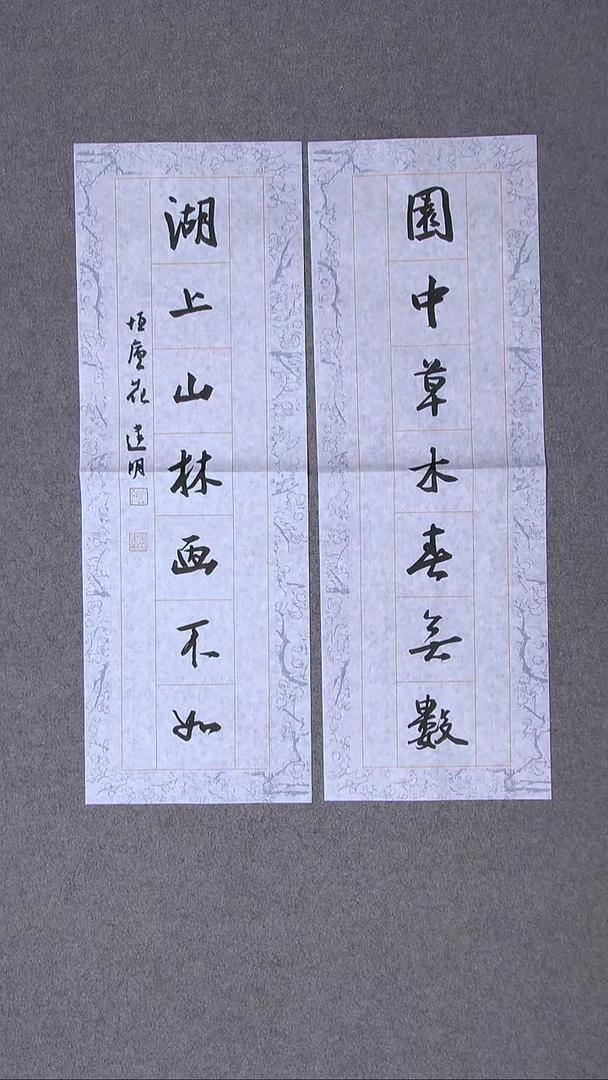 園中草木春無數
湖上山林画不如
恒廬花 建明